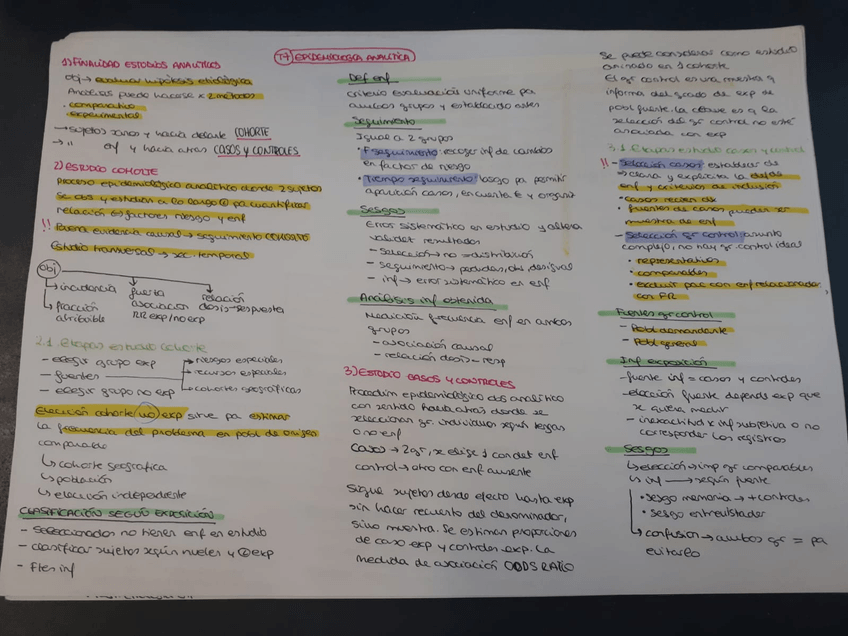 T7 EPIDEMIOLOGÍA ANALÍTICA
1) FINALIDAD ESTUDIOS ANALÍTICOS
Obj → evaluar hipótesis etiológica
Análisis puede hacerse x 2 métodos
· comparativo
· experimental
→ sujetos sanos y hacia delante COHORTE
→ " enf y hacia atrás CASOS Y CONTROLES
2) ESTUDIO COHORTE
Proceso epidemiológico analítico donde 2 sujetos
se obs y estudian a lo largo pa cuantificar
relación os factores riesgo y enf
!! Buena evidencia causal → seguimiento COHORTES
Estudio transversal → sec. temporal
Obj
↳ incidencia
↳ fracción
atribuible
fuerza
asociación
RR exp/no exp
relación
dosis-respuesta
2.1. Etapas estudio cohorte
- elegir grupo exp
- fuentes
- elegir grupo no exp
→ riesgos especiales
→ recursos especiales
→ cohortes geográficas
Elección cohorte no exp sirve pa estimar
la frecuencia del problema en pobl de origen
comparable
↳ cohorte geográfica
↳ población
↳ elección independiente
CLASIFICACIÓN SEGÚN EXPOSICIÓN
- Seleccionados no tienen enf en estudio
- clasificar sujetos según niveles y exp
- Ftes inf
Def enf
criterio evaluación uniforme pa
ambos grupos y establecido antes
Seguimiento
Igual a 2 grupos
· F seguimiento: recoger inf de cambios
en factores de riesgo
· Tiempo seguimiento: largo pa permitir
aparición casos, en cuanto € y organiz
Sesgos
Error sistemático en estudio y altera
validez resultados
- Selección → no = distribución
- seguimiento → perdidas, obs, desigual
- inf → error sistemático en enf
Análisis inf obtenida
Medición frecuencia enf en ambos
grupos
- asociación causal
- relación dosis - resp
3) ESTUDIO CASOS Y CONTROLES
Procedim epidemiológico obs analítico
con sentido hacia atrás donde se
seleccionan gr individuos según tengas
o no enf
Casos → 2 gr, x elige 1 con det enf
control → otro con enf ausente
Sigue sujetos desde efecto hasta exp
sin hacer recuento del denominador,
sino muestra. Se estiman proporciones
de caso exp y controles exp. La
medida de asociación ODDS RATIO
Se puede considerar como estudio
anidado en 1 cohorte
El gr control es una muestra q
informa del grado de exp de
pobl fuente. La clave es q la
selección del gr control no esté
asociada con exp
3.1. Etapas estudio casos y control
!! - Selección casos: establecer de
→ clara y explícita la def de
enf y criterios de inclusión
· casos recien dx
· fuentes de casos pueden ser
muestra de enf
- Selección gr control: asunto
complejo, no hay gr. control ideal
· representativos
· comparables
· excluir pac con enf relacionadas
con FR
Fuentes gr control
- Pobl demandante
- Pobl general
Inf exposición
- fuente inf = casos y controles
- elección fuente depende exp que
se quiera medir
- inexactitud x inf subjetiva o no
corresponder los registros
Sesgos
↳ elección → imp gr comparables
↳ inf → según fuente
· sesgo memoria → + controles
· sesgo entrevistador
↳ confusión → ambos gr = pa
evitarlo